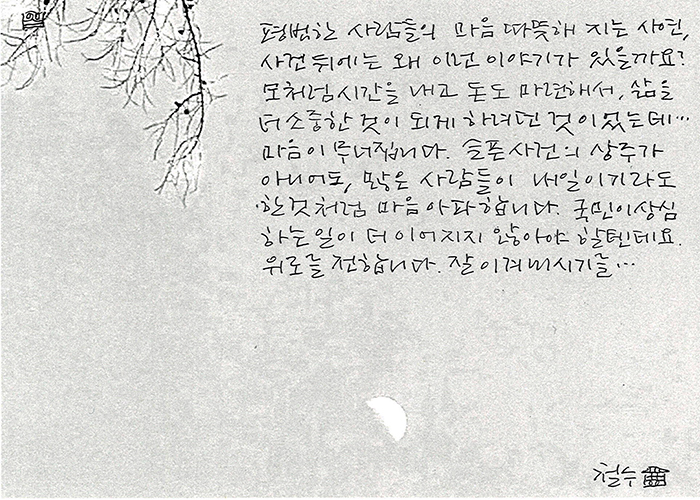 평범한 사람들의 마음 따뜻해 지는 사연,
사건 뒤에는 왜 이런 이야기가 있을까요?
모처럼 시간을 내고 돈도 마련해서, 삶을
더 소중한 것이 되게 하려던 것이었는데…
마음이 무너집니다. 슬픈 사건의 상주가
아니어도, 많은 사람들이 내일이기라도
한것처럼 마음 아파합니다. 국민이 상심
하는 일이 더 이어지지 않아야 할텐데요.
위로를 전합니다. 잘 이겨내시기를…
철수